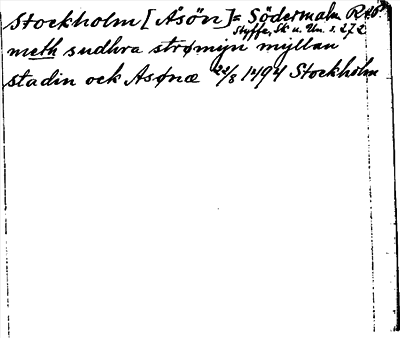 Stockholm [Åsön] = Södermalm
Styffe, Sk. u. Un. s. 272
meth sudhra strømyn myllan
stadin ock Asønæ 22/8 1494 Stockholm